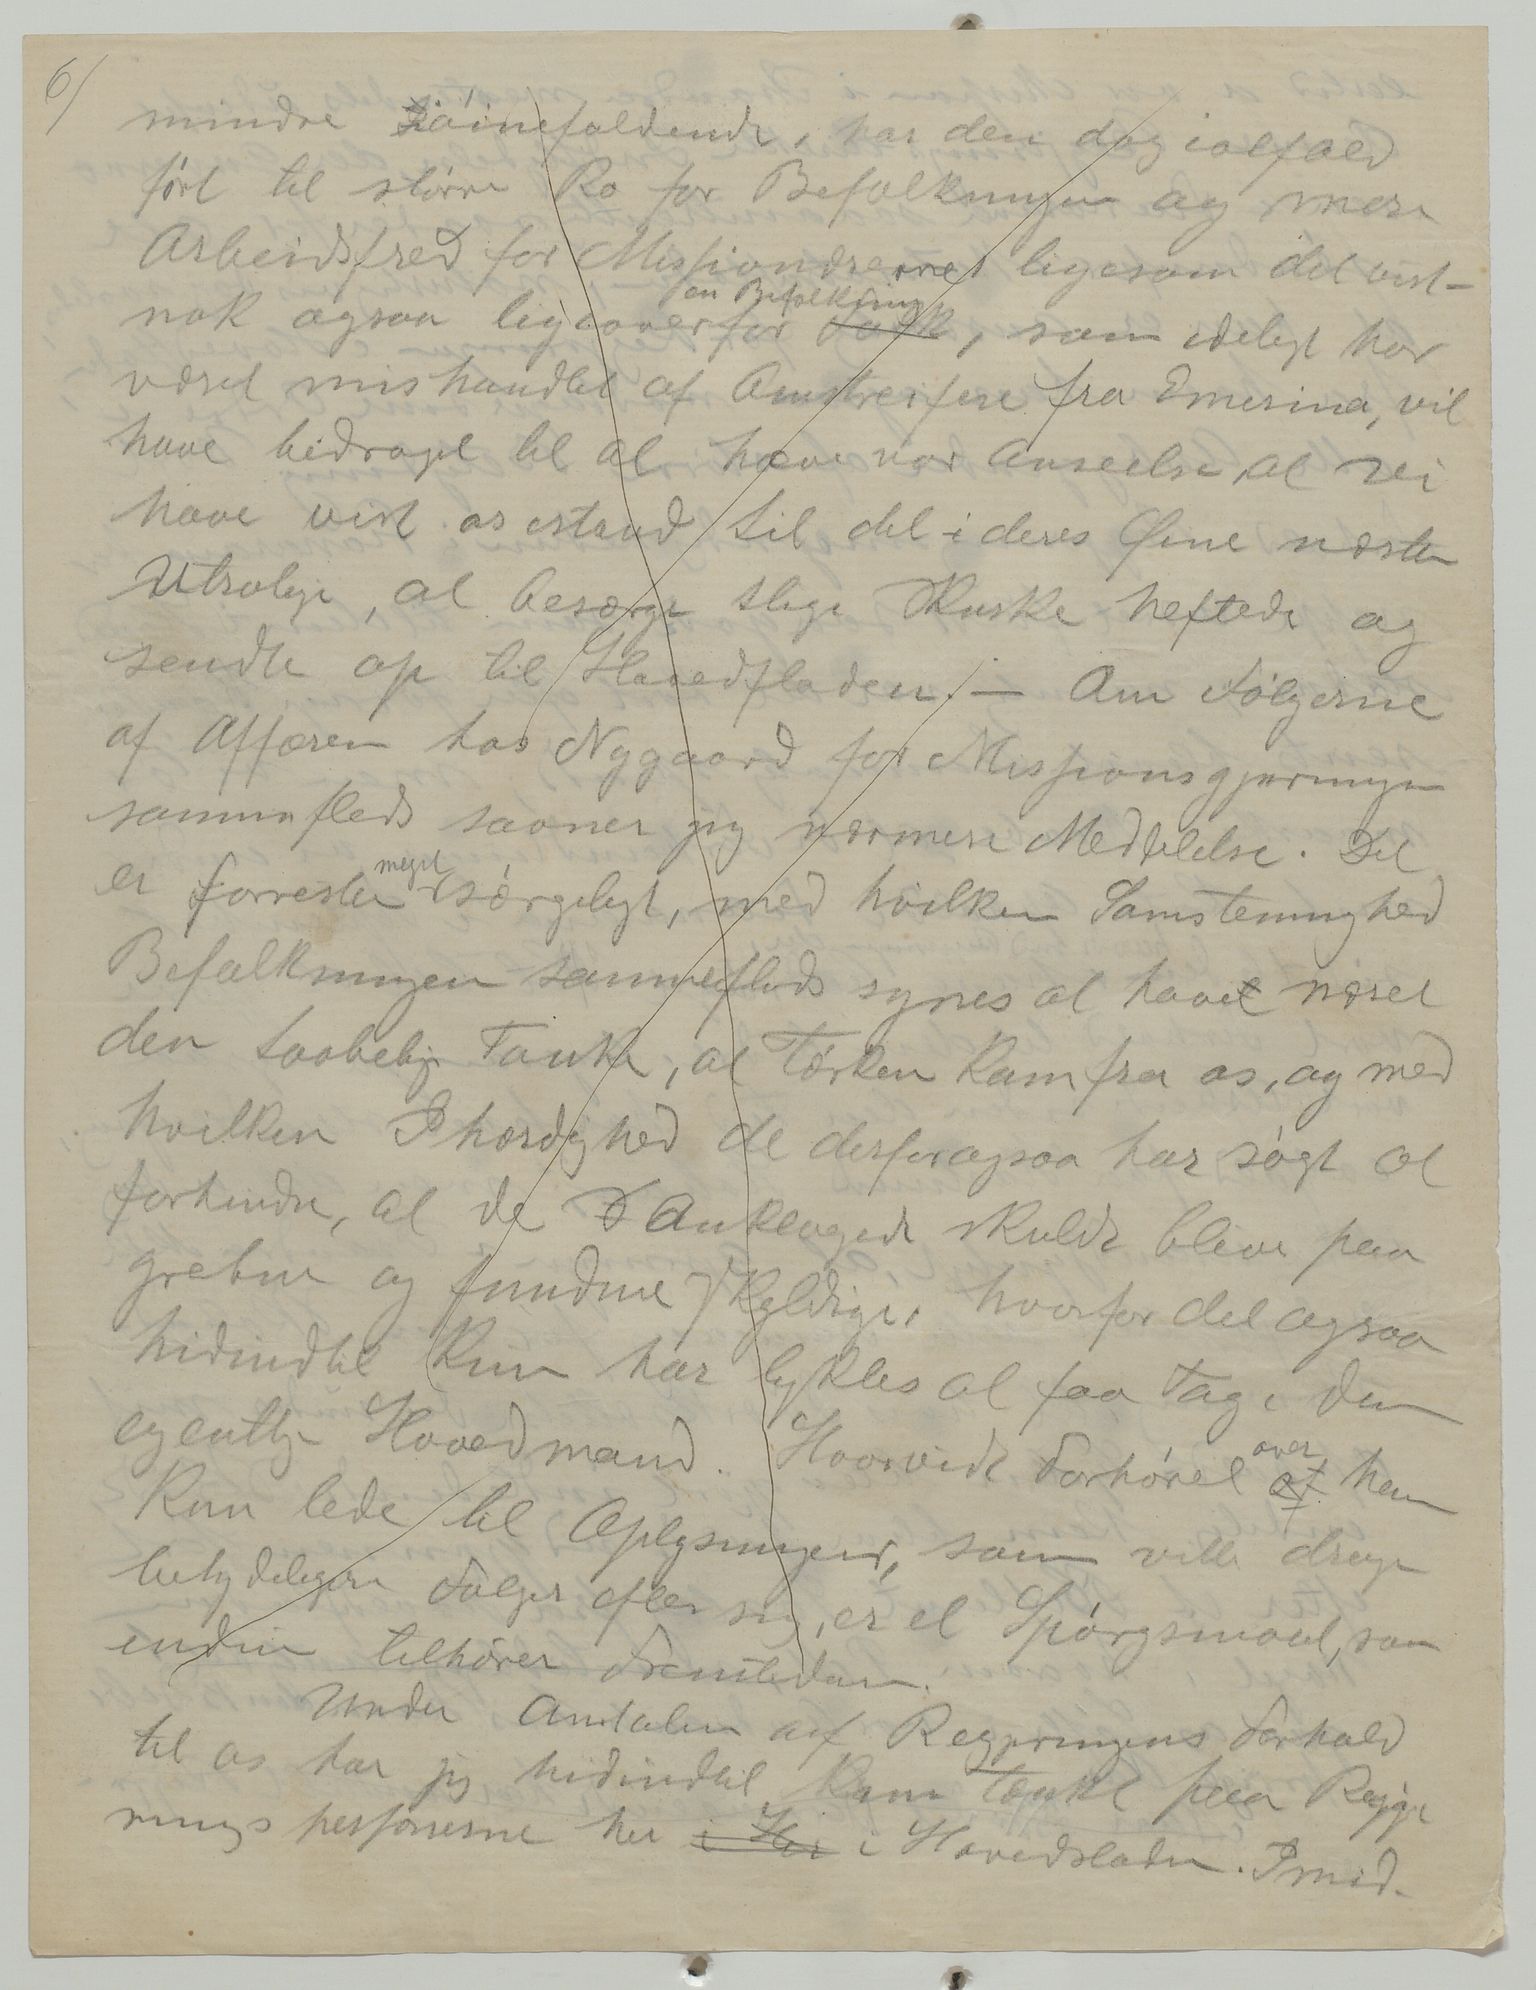 6/
mindre iöinefaldende, har den dog ialfald
ført til större Ro for Befolkningen og mere
Arbeidsfred for Missionærerne, ligesom det vist-
nok ogsaa ligeoverfor en Befolkning Folk, som idelig har
været mishandlet af Omstreifere fra Emerina, vil
have bidraget til at hæve vor Anseelse, at vi
have vist os istand til det i deres Øine næsten
Utrolige, at besørge slige Skurke heftede og
sendte op til Hovedstaden. — Om Følgerne
af Affæren hos Nygaard for Missionsgjerningen
sammesteds savner jeg nærmere Meddelelse. Det
er forresten meget sørgeligt, med hvilken Samstemmighed
Befolkningen sammesteds synes at have næret
den taabelige Tanke, at Tørken kom fra os, og med
hvilken Ihærdighed de derfor ogsaa har søgt at
forhindre, at de Anklagede skulde blive paa
grebne og fundne skyldige, hvorfor det ogsaa
hidindtil kun har lykkes at faa Tag i den
egentlige Hovedmand. Hvorvidt Forhöret over af ham
kan lede til Oplysninger, som ville drage
betydeligere Følger efter sig, er et Spörgsmaal, som
endnu tilhører Fremtiden.
Under Omtalen af Regjeringens Forhold
til os har jeg hidindtil kun tænkt paa Regje
ringspersonerne her i Her i Hovedstaden. Imid-